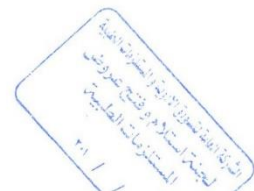 الشركة العامة لتسويق الادوية والمستلزمات الطبية
لجنة استلام وفتح عروض
المستلزمات الطبية
/ / ٢٠١